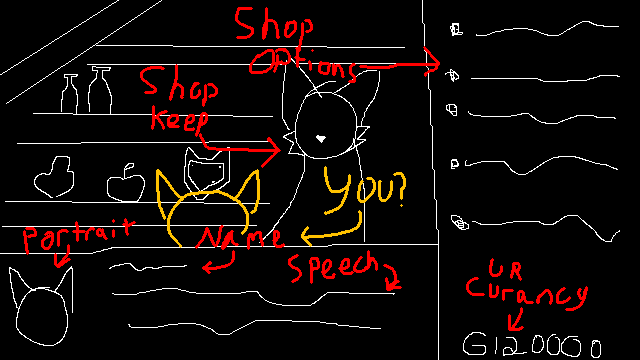 Shop
Options
Shop
Keep
YOU?
Portrait
Name
Speech
UR
Curancy
G120000